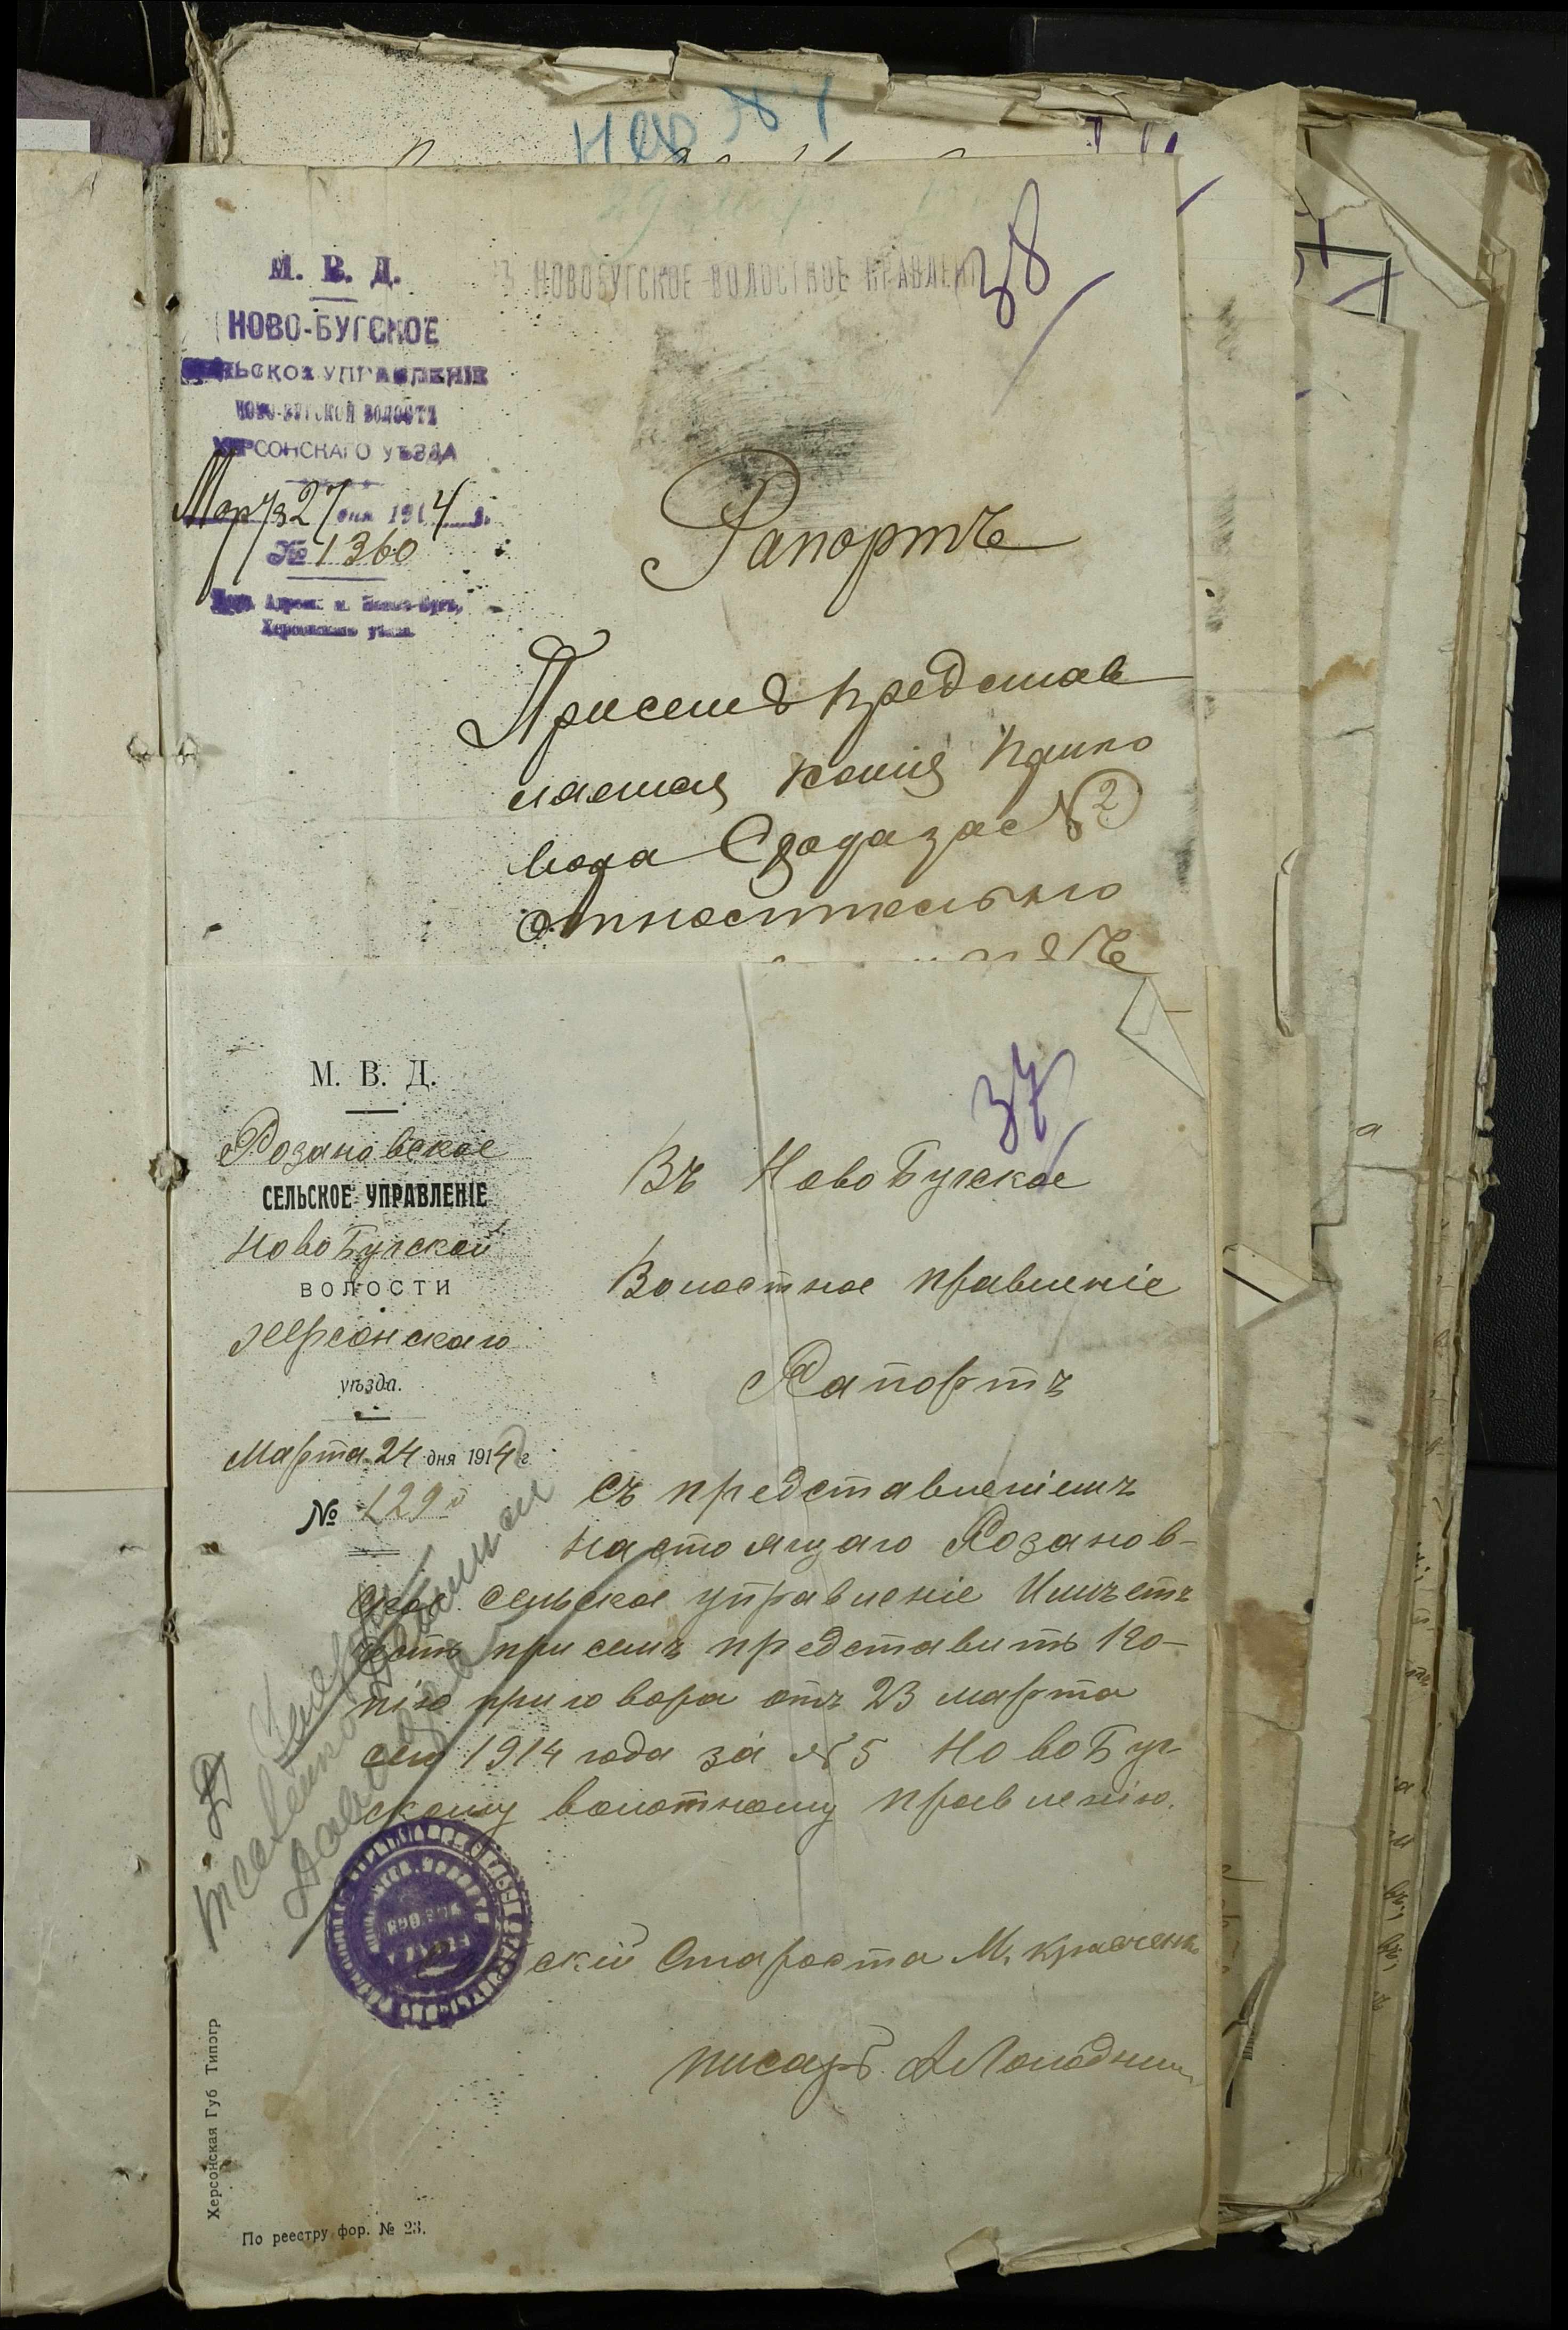 38
М. В. Д.
НОВО-БУГСКОЕ
СЕЛЬСКОЕ УПРАВЛЕНІЕ
НОВО-БУГСКОЙ ВОЛОСТИ
ХЕРСОНСКАГО УѢЗДА
Марта 27 дня 1914 г.
№ 1360
ВЪ НОВОБУГСКОЕ ВОЛОСТНОЕ ПРАВЛЕНІЕ
Рапортъ
При семъ представ
ляется копія
за № 2
относительно
37
М. В. Д.
Розановское
СЕЛЬСКОЕ УПРАВЛЕНІЕ
Ново Бугской
ВОЛОСТИ
Херсонскаго
уѣзда.
Марта 24 дня 1914 г.
№ 129
Въ Ново Бугское
Волостное правленіе
Рапортъ
Съ представленіемъ
настоящаго Розанов-
ское сельское управленіе Имѣетъ
честь при семъ представить ко-
пію приговора отъ 23 марта
сего 1914 года за № 5 Ново Буг
скому волостному правленію.
скій Староста М. Кравченко
писарь
Херсонская Губ Типогр
По реестру фор. № 23.